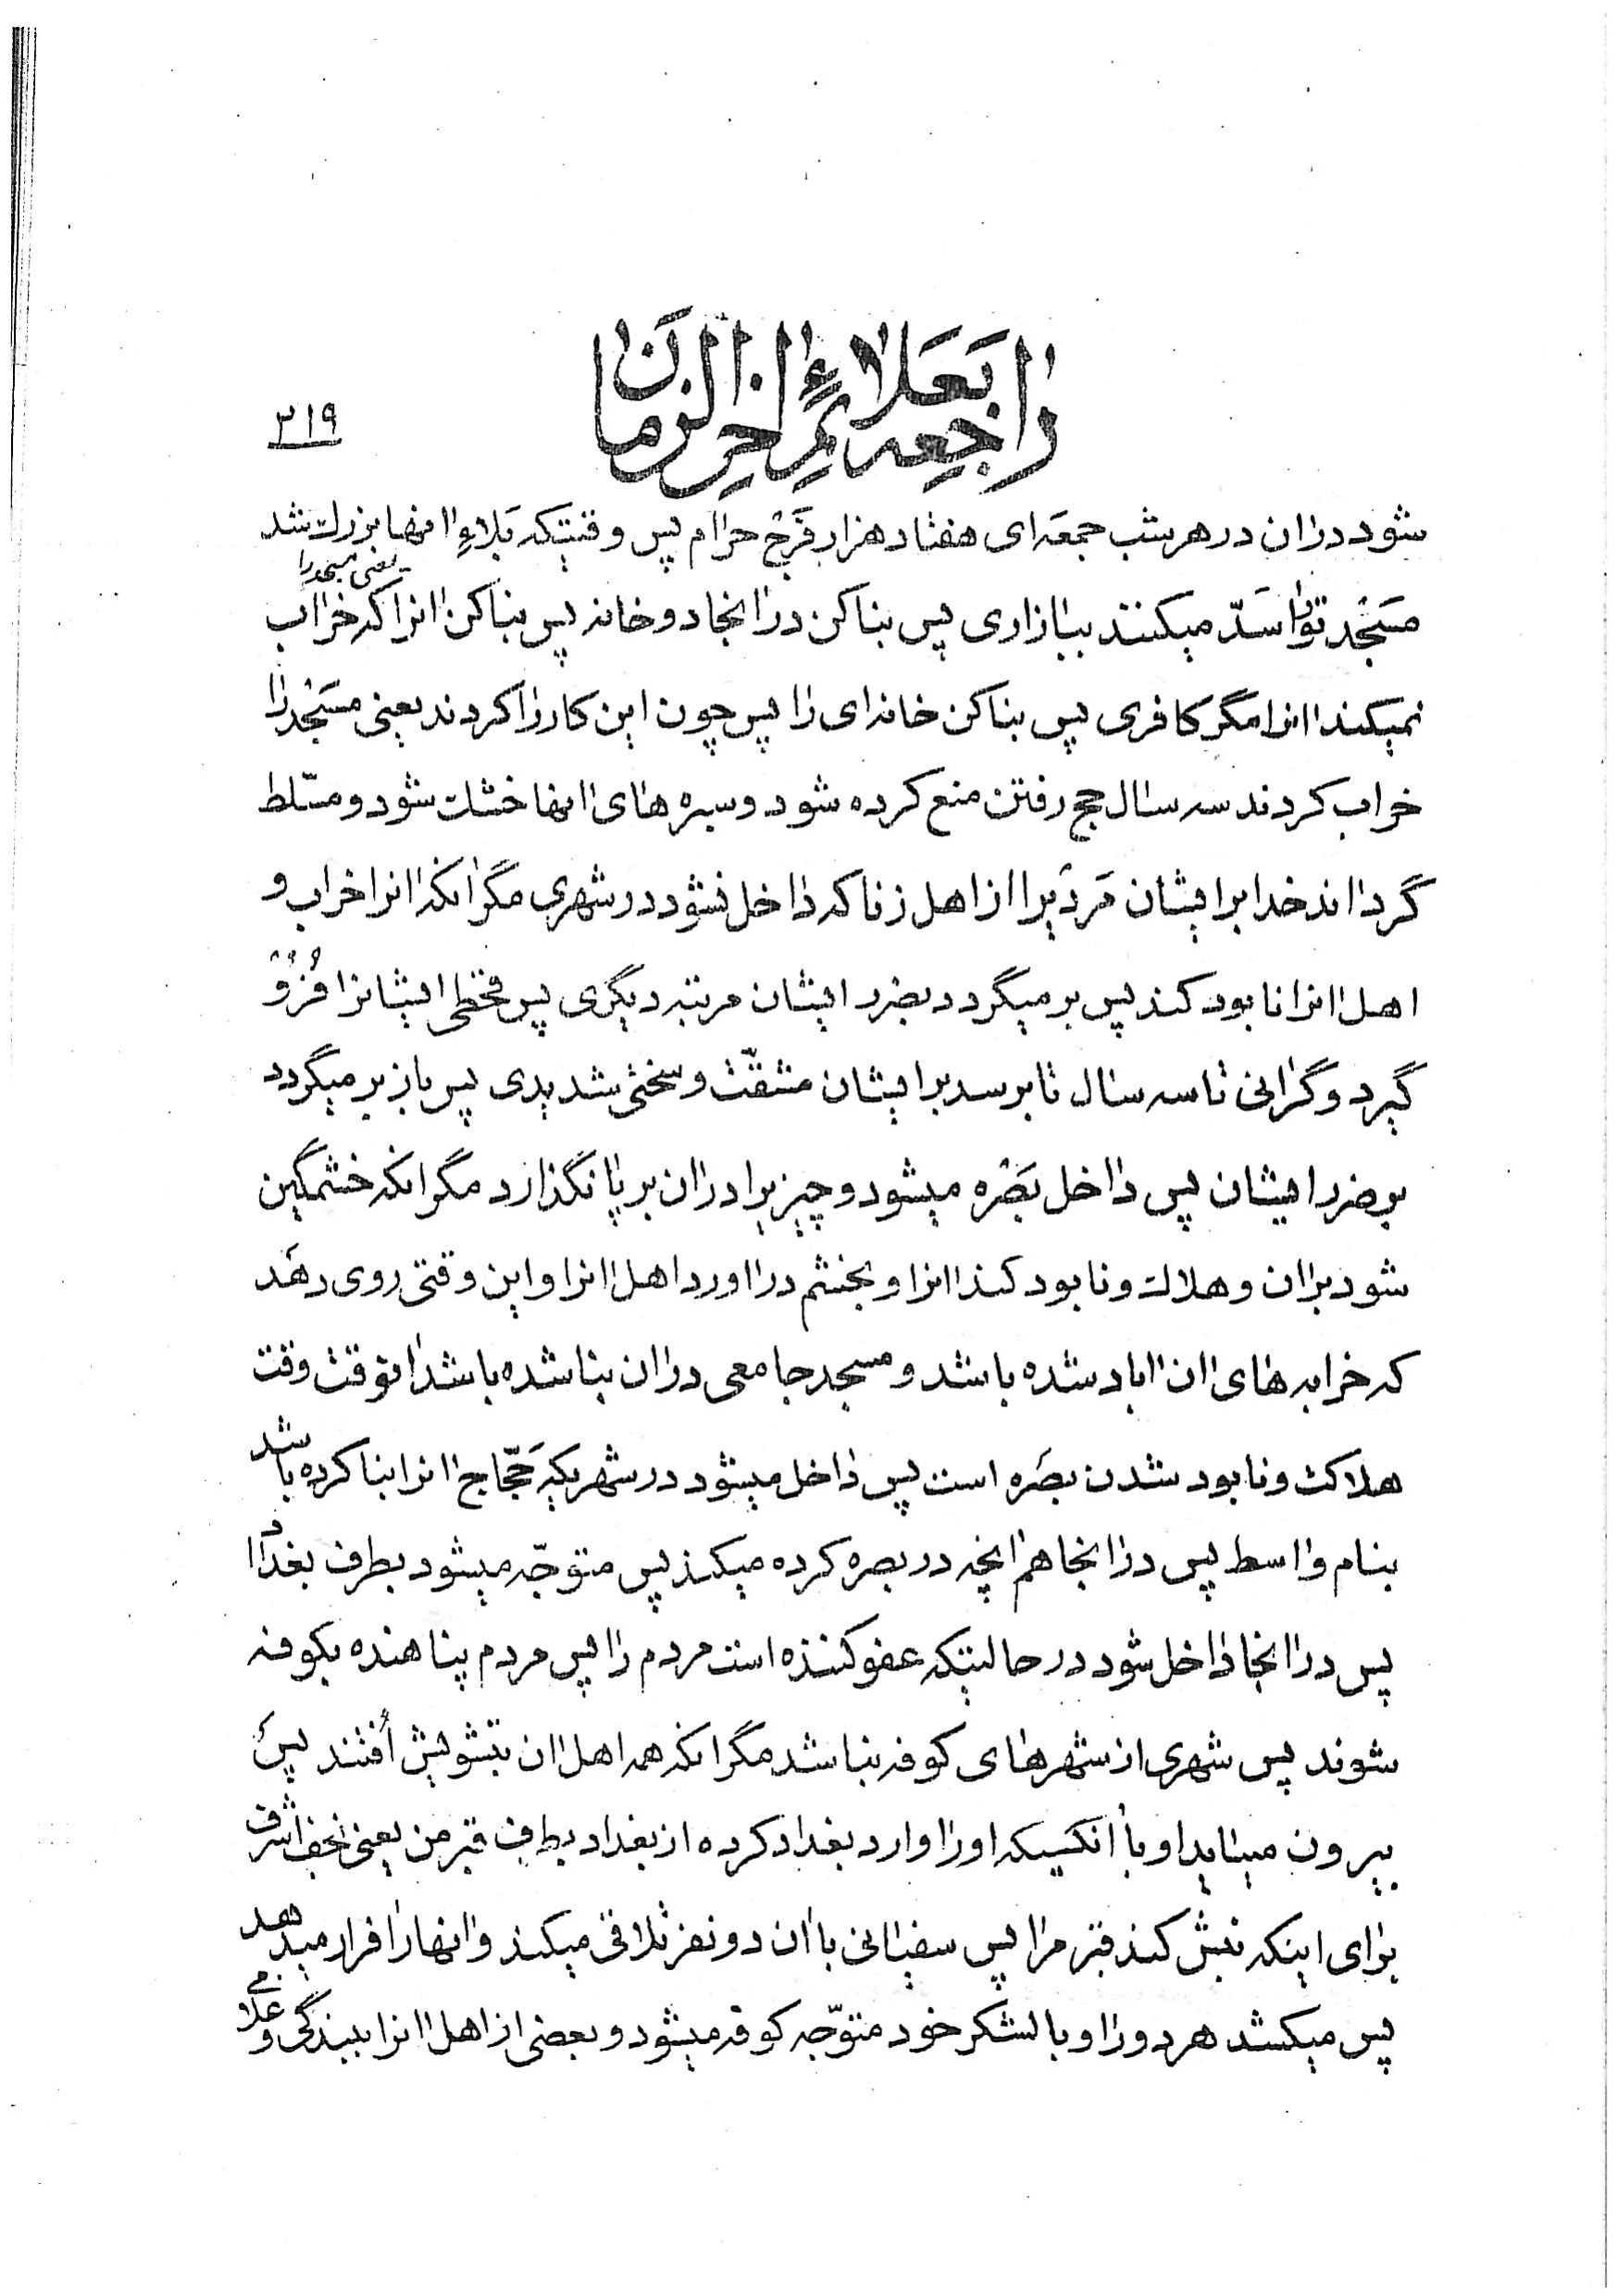 راجعه بعلائم اخر الزمان
۳۱۹
شود دران در هر شب جمعه‌ای هفتاد هزار فَرَج حرام پس وقتیکه بَلاءِ انها بزرك شد
یعنی مسجدرا
مَسْجد تو را سَدّ میکنند ببازاری پس بنا کن در انجا دو خانه پس بنا کن انرا که خراب
نمیکند انرا مگر کافری پس بنا کن خانه‌ای را پس چون این کار را کردند یعنی مَسْجد را
خراب کردند سه سال حج رفتن منع کرده شود و سبزه‌های انها خشك شود و مسّلط
گرداند خدا بر ایشان مَردیرا از اهل زنا که داخل نشود در شهری مگر انکه انرا خراب و
اهل انرا نابود کند پس بر میگردد بضرر ایشان مرتبه دیگری پس قحطی ایشانرا فُرُوْ
گیرد و گرانی تا سه سال تا برسد بر ایشان مشقّت و سختی شدیدی پس باز بر میگردد
بر ضرر ایشان پس داخل بَصْره میشود و چیزیرا دران بر پا نگذارد مگر انکه خشمگین
شود بر ان و هلاك و نابود کند انرا و بخشم در اورد اهل انرا و این وقتی روی دهَد
که خرابه‌های ان اباد شده باشد و مسجد جامعی دران بنا شده باشد انوقت وقت
هلاکت و نابود شدن بصَره است پس داخل میشود در شهریکه حَجّاج انرا بنا کرده باشد
بنام واسط پس در انجا هم انچه در بصره کرده میکند پس متوجّه میشود بطرف بغداد
پس در انجا داخل شود در حالتیکه عفو کننده است مردم را پس مردم پناهنده بکوفه
شوند پس شهری از شهرهای کوفه نباشد مگر انکه همه اهل ان بتشویش اُفتند پسَ
بیرون میاید او با آنکسیکه او را وارد بغداد کرده از بغداد بطرف قبر من یعنی نجف اشرف
برای اینکه نبش کند قبر مرا پس سفیانی با ان دو نفر تلاقی میکند و انها را فرار میدهد
پس میکشد هر دو را و با لشکر خود متوّجه کوفه میشود و بعضی از اهل انرا ببندگی و غلامی